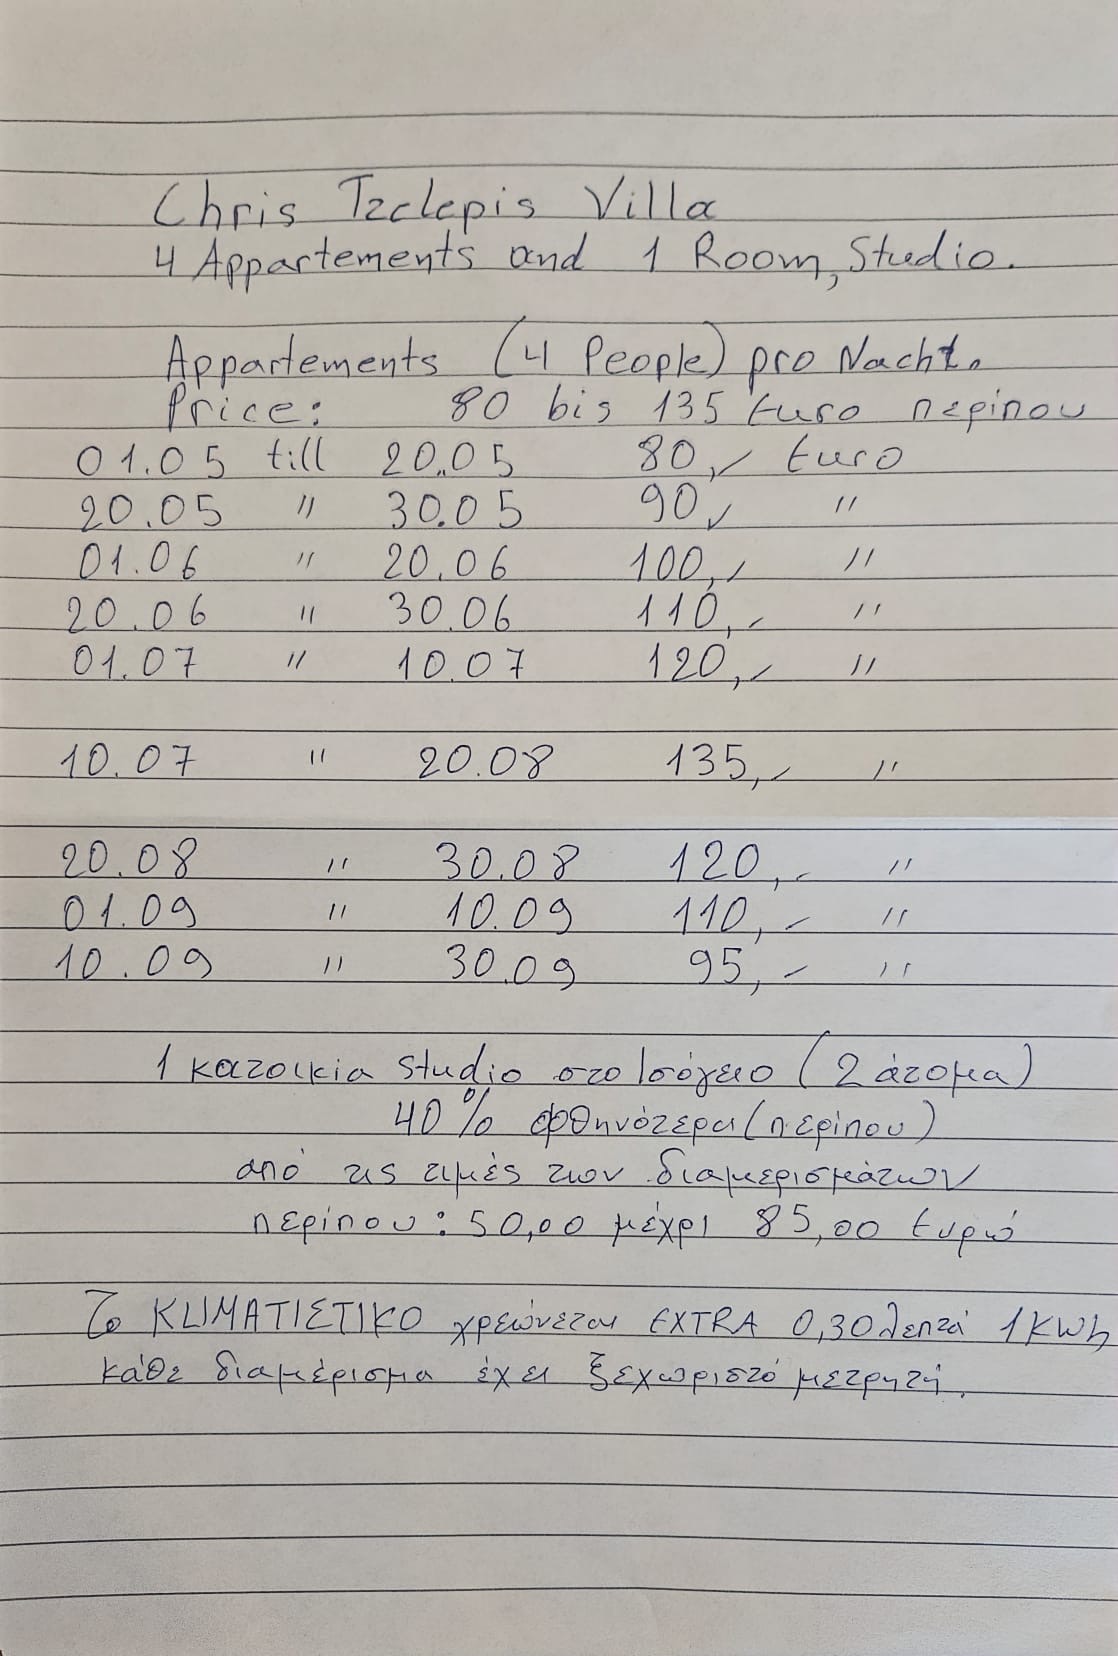 Chris Tzelepis Villa
4 Appartements and 1 Room, Studio.
Appartements (4 People) pro Nacht.
Price: 80 bis 135 Euro περίπου
01.05 till 20.05 80,- Euro
20.05 " 30.05 90,- "
01.06 " 20.06 100,- "
20.06 " 30.06 110,- "
01.07 " 10.07 120,- "
10.07 " 20.08 135,- "
20.08 " 30.08 120,- "
01.09 " 10.09 110,- "
10.09 " 30.09 95,- "
1 κατοικία Studio στο Ισόγειο (2 άτομα)
40% φθηνότερα (περίπου)
από τις τιμές των διαμερισμάτων
περίπου: 50,00 μέχρι 85,00 Ευρώ
Το KLIMATIΣTIKO χρεώνεται EXTRA 0,30 λεπτά 1 KWh
κάθε διαμέρισμα έχει ξεχωριστό μετρητή.